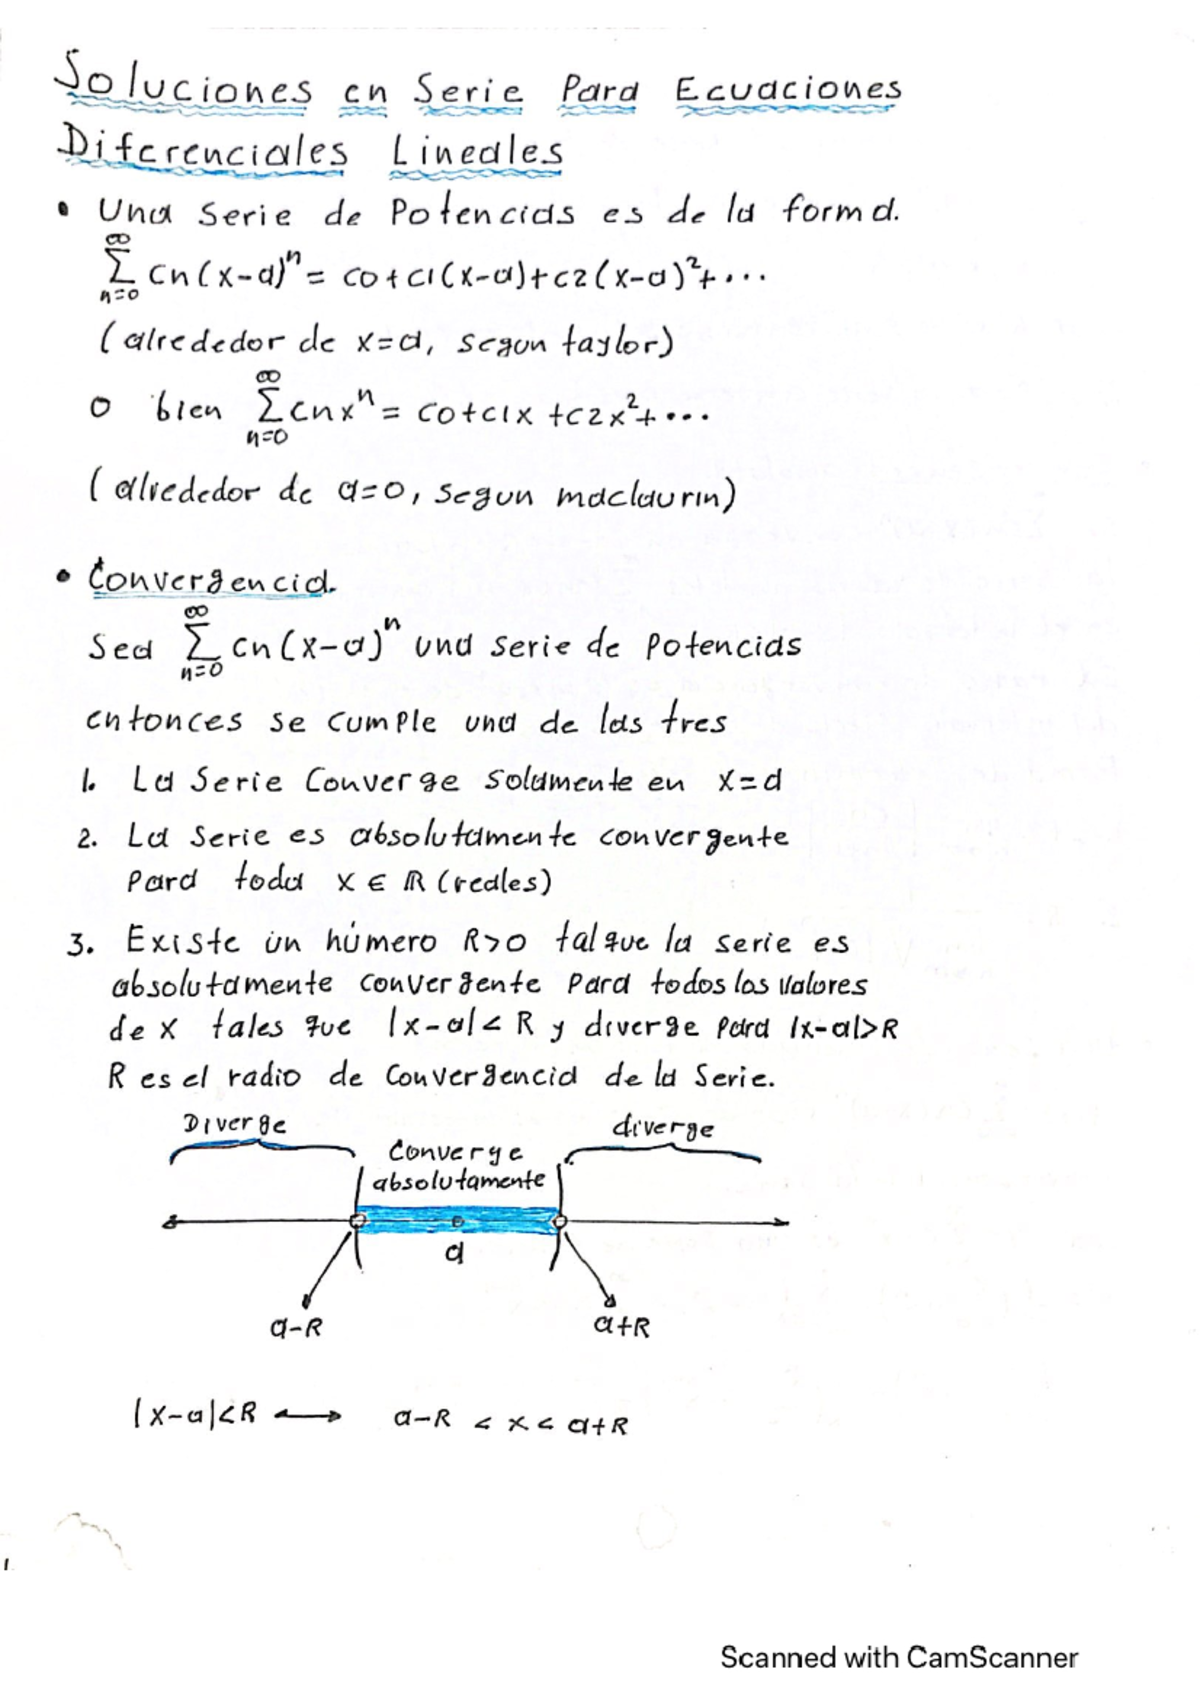 Soluciones en Serie Para Ecuaciones
Diferenciales Lineales
• Una serie de Potencias es de la forma.
∞
∑ cn(x-a)ⁿ = c0+c1(x-a)+c2(x-a)²+...
n=0
(alrededor de x=a, segun taylor)
∞
o bien ∑cnxⁿ = c0+c1x+c2x²+...
n=0
(alrededor de a=0, segun maclaurin)
• Convergencia.
∞
Sea ∑ cn(x-a)ⁿ una serie de Potencias
n=0
entonces se cumple una de las tres
1. La Serie Converge solamente en x=a
2. La serie es absolutamente convergente
Para toda x ∈ ℝ (reales)
3. Existe un número R>0 tal que la serie es
absolutamente convergente para todos los valores
de x tales que |x-a|<R y diverge para |x-a|>R
R es el radio de Convergencia de la Serie.
Diverge diverge
Converge
absolutamente
a
a-R a+R
|x-a|<R ⟷ a-R < x < a+R
1
Scanned with CamScanner